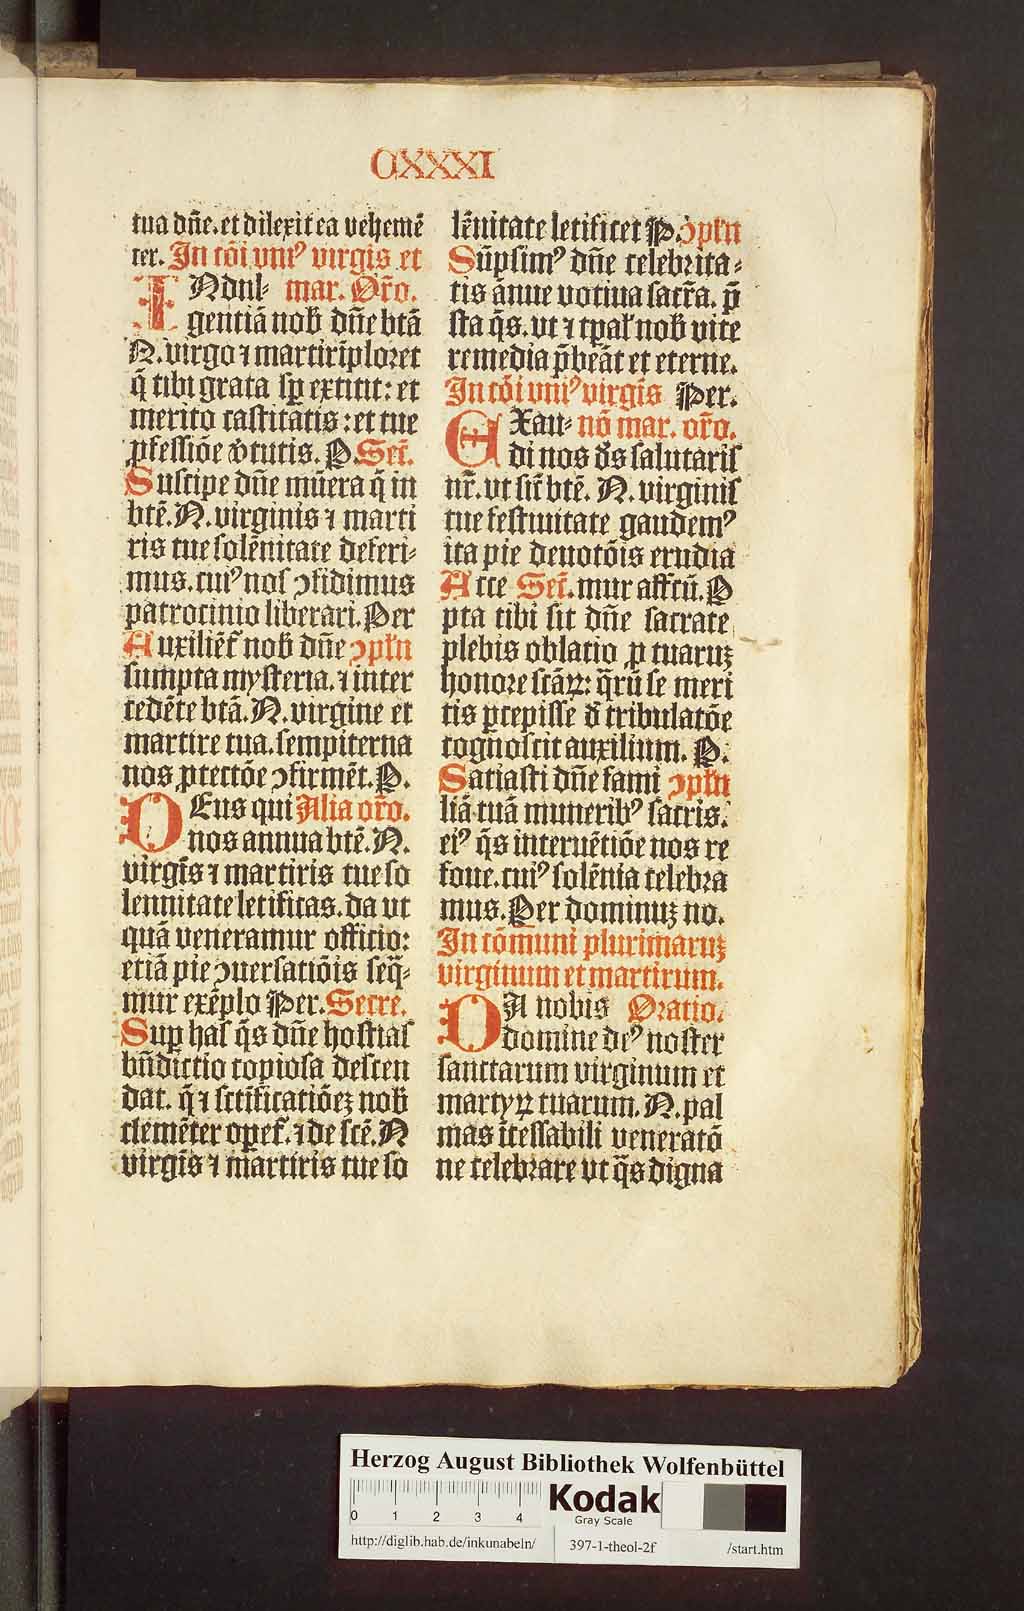 CXXXI
tua dñe. et dilexit ea vehemẽ
ter. In cõi vniꝰ virgis et
INdul⸗ mar. Or̃o.
gentiã nob̃ dñe btã
N. virgo ⁊ martir ĩploret
q̃ tibi grata sꝑ extitit: et
merito castitatis: et tue
ꝓfessiõe v̾tutis. P. Sec̃.
Suscipe dñe mũera q̃ in
btẽ. N. virginis ⁊ marti
ris tue solẽnitate deferi⸗
mus. cuiꝰ nos ꝯfidimus
patrocinio liberari. Per
Auxiliẽt̃ nob̃ dñe ꝯpl̃n
sumpta mysteria. ⁊ inter
cedẽte btã. N. virgine et
martire tua. sempiterna
nos ꝓtectõe ꝯfirmẽt. P.
DEus qui Alia or̃o.
nos annua btẽ. N.
virgĩs ⁊ martiris tue so
lennitate letificas. da vt
quã veneramur officio:
etiã pie ꝯuersatiõis seq̃⸗
mur exẽplo Per. Secre.
Suꝑ has q̃s dñe hostias
bñdictio copiosa descen
dat. q̃ ⁊ sctificatiõeꝫ nob̃
clemẽter oꝑet̃. ⁊ de scẽ. N
virgĩs ⁊ martiris tue so
lẽnitate letificet P. ꝯpl̃n
Sũpsimꝰ dñe celebrita⸗
tis ãnue votiua sacr̃a. p̃
sta q̃s. vt ⁊ tꝑal̃ nob̃ vite
remedia p̃beãt et eterne.
In cõi vniꝰ virgĩs Per.
EXau⸗ nõ mar. or̃o.
di nos d̾s salutaris
nr̃. vt sic̃ btẽ. N. virginis
tue festiuitate gaudemꝰ
ita pie deuotõis erudia
Acce Sec̃. mur affcũ. P
pta tibi sit dñe sacrate
plebis oblatio ꝓ tuaruꝫ
honore scãꝝ: q̃rũ se meri
tis ꝑcepisse d̾ tribulatõe
cognoscit auxilium. P.
Satiasti dñe fami ꝯpl̃n
liã tuã muneribꝰ sacris.
eiꝰ q̃s interuẽtiõe nos re
foue. cuiꝰ solẽnia celebra
mus. Per dominuꝫ no.
In cõmuni plurimaruꝫ
virginum et martirum.
DA nobis Oratio.
domine deꝰ noster
sanctarum virginum et
martyꝝ tuarum. N. pal
mas ĩcessabili veneratõ
ne celebrare vt q̃s digna
Herzog August Bibliothek Wolfenbüttel
0 1 2 3 4
Kodak
Gray Scale
http://diglib.hab.de/inkunabeln/ 397-1-theol-2f /start.htm